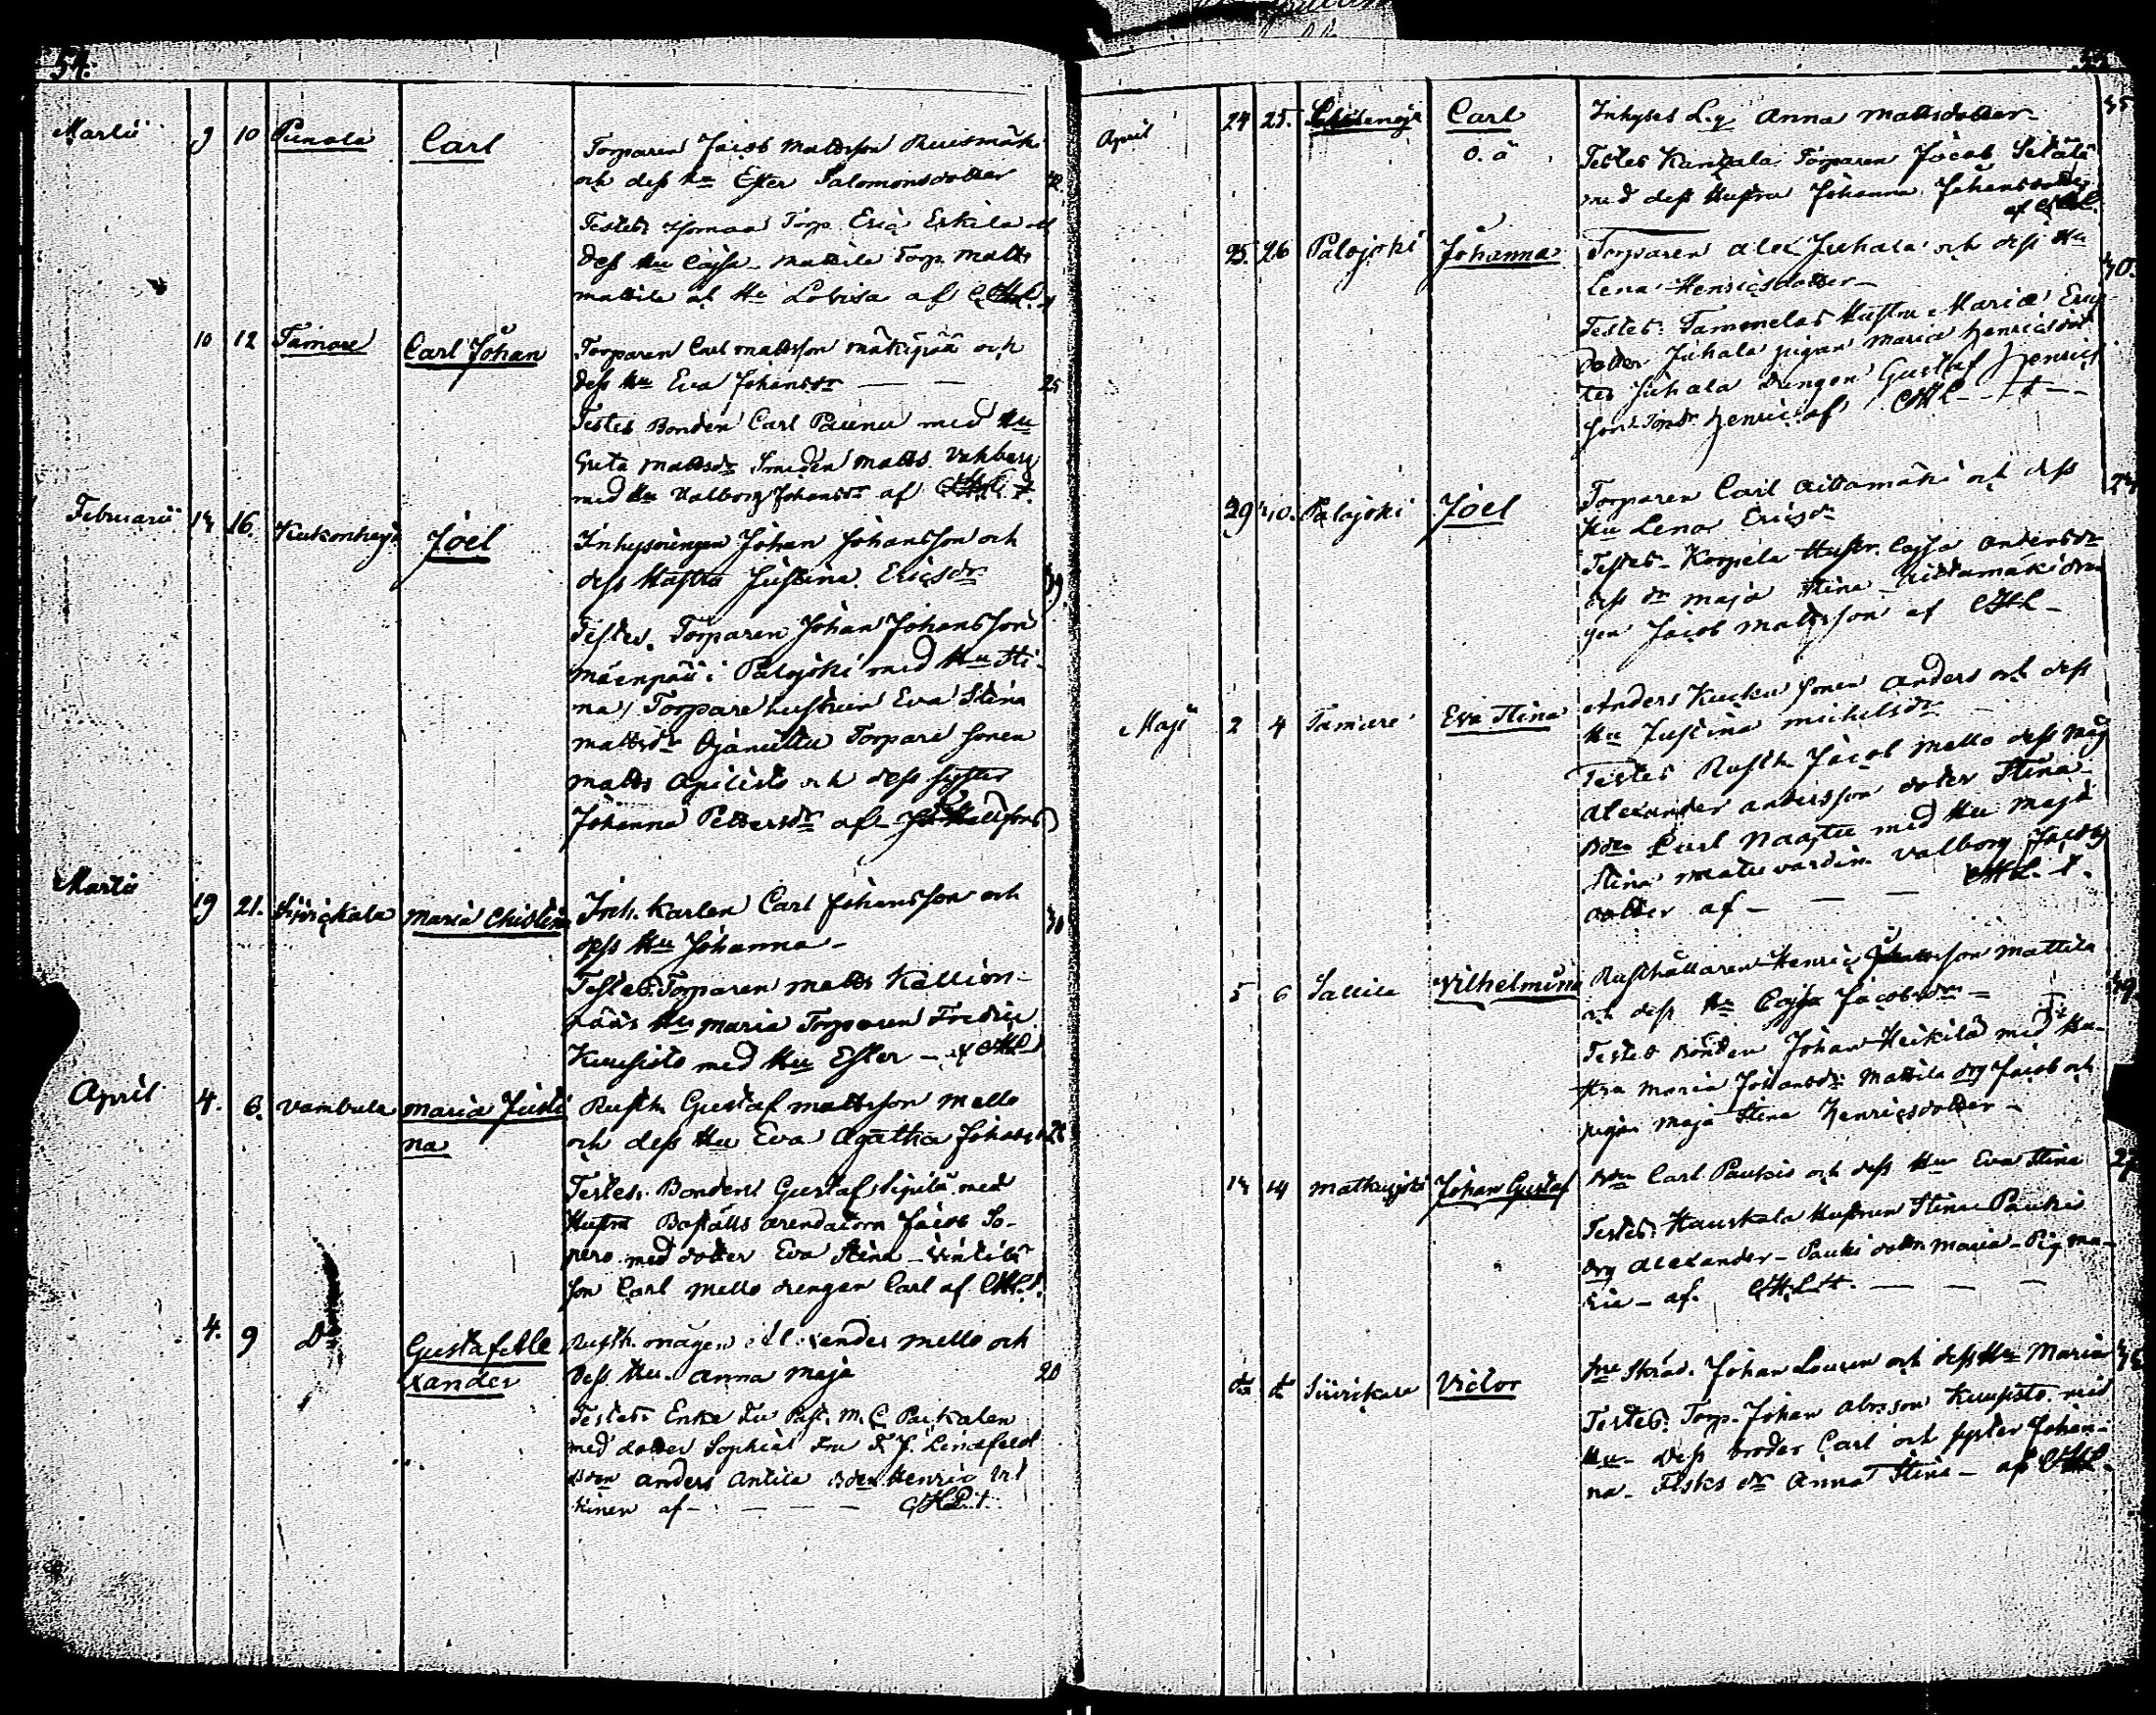 Martii 9 10 Punola Carl Torparen Jacob Mattsson Ruismäki
och dess Hu Ester Salomonsdotter 42.
Testes Torp. Eric Erkila och
dess Hu Cajsa Mattila Torp. Matts
Mattila och Hu Lovisa af CHL
10 12 Tamare Carl Johan Torparen Carl Mattsson Mäkipää och
dess Hu Eva Johansdr — — 25
Testes Bonden Carl Paunu med Hu
Greta Mattsdr Smeden Matts Vahberg
med Hu Valborg Johansdr af
Februarii 14 16. Kukonharj Joel Inhysingen Johan Johansson och
dess Hustru Justina Ericsdr 39.
Testes. Torparen Johan Johansson
Mäenpää i Palojoki med Hu Sti-
na/ Torpare hustrun Eva Stina
Mattsdr Ojanuttu Torpare sonen
Matts och dess syster
Johanna Pettersdr af
Martii 19 21. Siirickala Maria Christina Inh. Karlen Carl Johansson och 30
dess Hu Johanna —
Testes. Torparen Matts Kallion-
pää Hu Maria Torparen Fredric
Kuusisto med Hu Ester — af CHL
April 4. 6. Vambula Maria Justi Rusth. Gustaf Mattsson Mello
na och dess Hu Eva Agatha Johans
Testes. Bonden Gustaf Sipilä med
Hustru Boställs arendatorn Jacob So-
pero med dotter Eva Stina —
son Carl Mello drengen Carl af CHL.
4. 9 Do Gustaf Ale Rusth. mågen Alexander Mello och
xander Dess Hu. Anna Maja 20
Testes. Enke Fru Past. M. C.
med dotter Sophia Fru F. J. Lindfeldt
Bden Anders Antila Bden Henric Vir
kinen af — — — — CHL
April 24 25. Carl Inhyses L. q. Anna Mattsdotter 35
o. ä Testes Kanzala Torparen Jacob Setälä
med dess Hustru Johanna Johansdotter
af CHL.
25. 26 Palojoki Johanna Torparen Alex Juhala och dess Hu
Lena Henricsdotter — 40.
Testes: Tamonelas Hustru Maria Eric
dotter Juhala pigan Maria Henricsdot
ter Juhala drengen Gustaf Henrics
son Henric af CHL
29 30. Palojoki Joel Torparen Carl Aittamäki och dess
Hu Lena Ericsdr
Testes — Korpela Hustr. Cajsa Andersdr
dess dr Maja Stina — Aittamäki dren
gen Jacob Mattsson af CHL —
Maji 2 4 Tamare Eva Stina Anders Kucku sonen Anders och dess
Hu Justina Michelsdr
Testes Rusth. Jacob Mello dess måg
Alexander Andersson doter Stina
Bden Carl Naatu med Hu Maja
Stina Valborg Jacobs
dotter af — — — CHL.
5 6 Sallila Vilhelmina Rusthållaren Henric Mattila
och dess Hu Cajsa Jacobsdr —
Testes Bonden Johan Heikilä med Hu-
stru Maria Johansdr Mattila drg Jacob och
pigan Maja Stina Henricsdotter —
14 Matkusjoki Johan Gustaf Bden Carl Paukis och dess Hu Eva Stina 27
Testes. Hauskala Hustrun Stina Paukis
drg Alexander — Pauki dottr. Maria — Pig. Ma-
ria — af. CHL — — —
do do Siirickala Victor Skräd. Johan Lauren och dess Hu Maria
Testes. Torp. Johan Abrsson Kuusisto med
Hu — dess broder Carl och syster Johan-
na — dr Anna Stina — af CHL.